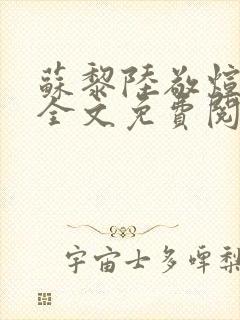 蘇黎陸敬煊
全文免費閱
宇宙士多啤梨